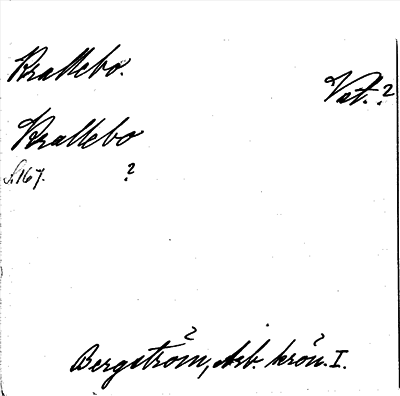 Krallebo.
Vat.?
Krallebo
S. 167. ?
Bergström, Arb. krön. I.